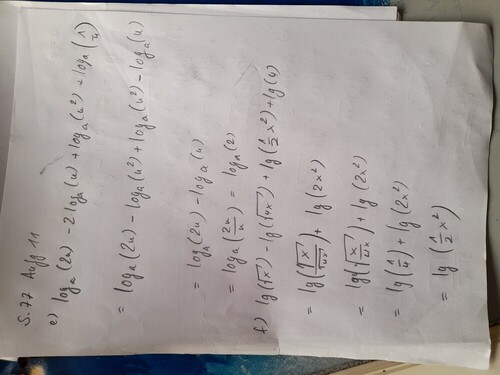 S. 77 Aufg 11
e) logₐ(2u) - 2logₐ(u) + logₐ(u²) + logₐ(1/u)
= logₐ(2u) - logₐ(u²) + logₐ(u²) - logₐ(u)
= logₐ(2u) - logₐ(u)
= logₐ(2u/u) = logₐ(2)
f) lg(√x) - lg(√4x) + lg(1/2 x²) + lg(4)
= lg(√x/√4x) + lg(2x²)
= lg(√(x/4x)) + lg(2x²)
= lg(√(1/4)) + lg(2x²)
= lg(1/2 x²)